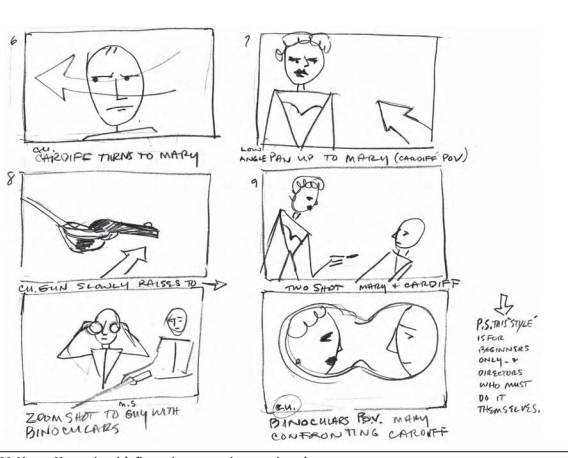 6
C.U.
CARDIFF TURNS TO MARY
7
LOW
ANGLE PAN UP TO MARY (CARDIFF POV)
8
C.U. GUN SLOWLY RAISES TO
9
TWO SHOT MARY & CARDIFF
M.S.
ZOOM SHOT TO GUY WITH
BINOCULARS
C.U.
BINOCULARS P.O.V. MARY
CONFRONTING CARDIFF
P.S. THIS "STYLE"
IS FOR
BEGINNERS
ONLY - &
DIRECTORS
WHO MUST
DO IT
THEMSELVES.